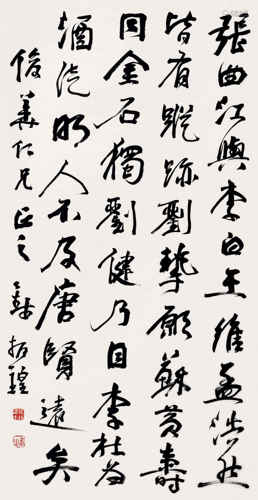 張曲江與李白王維孟浩然
皆有蹤跡劉摯願蘇黃壽
同金石獨劉健乃目李杜為
酒徒明人不及唐賢遠矣
俊華仁兄正之 錢振鍠